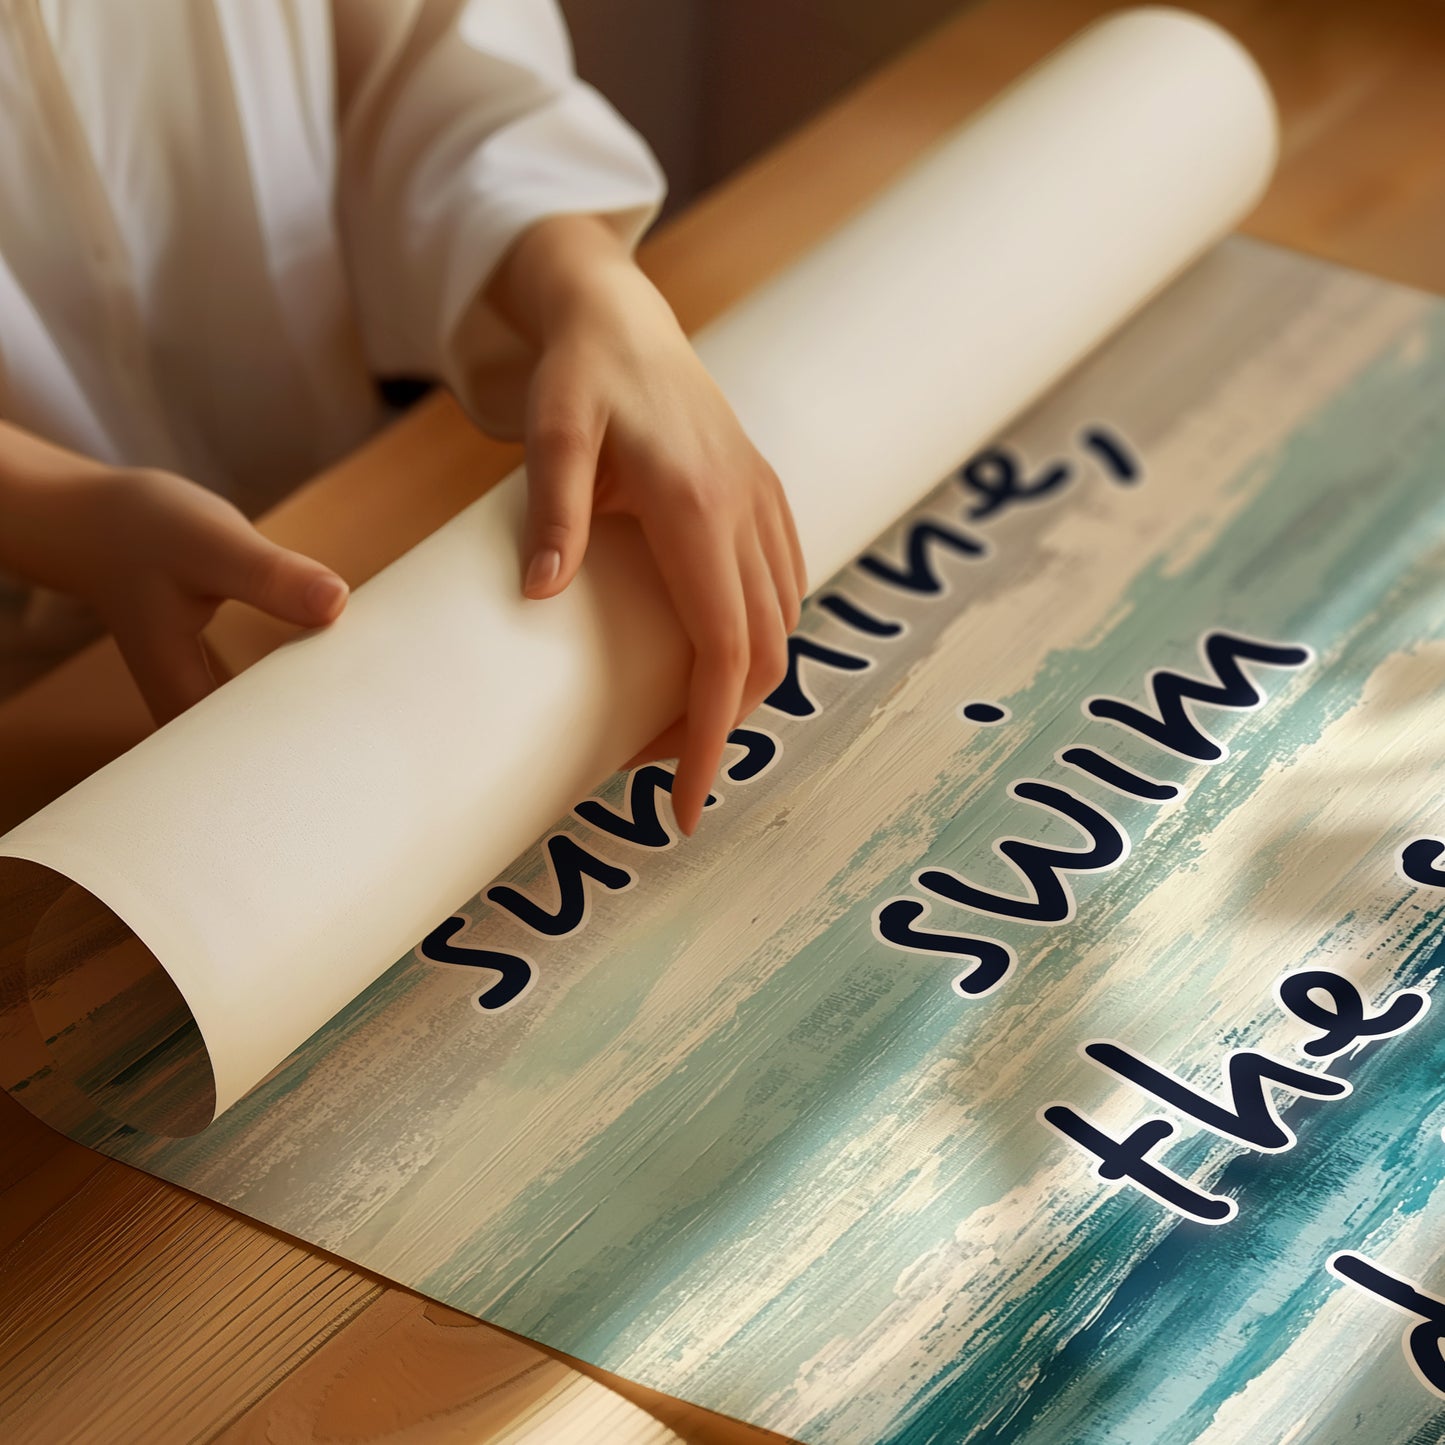 sunshine,
swim
the s
d